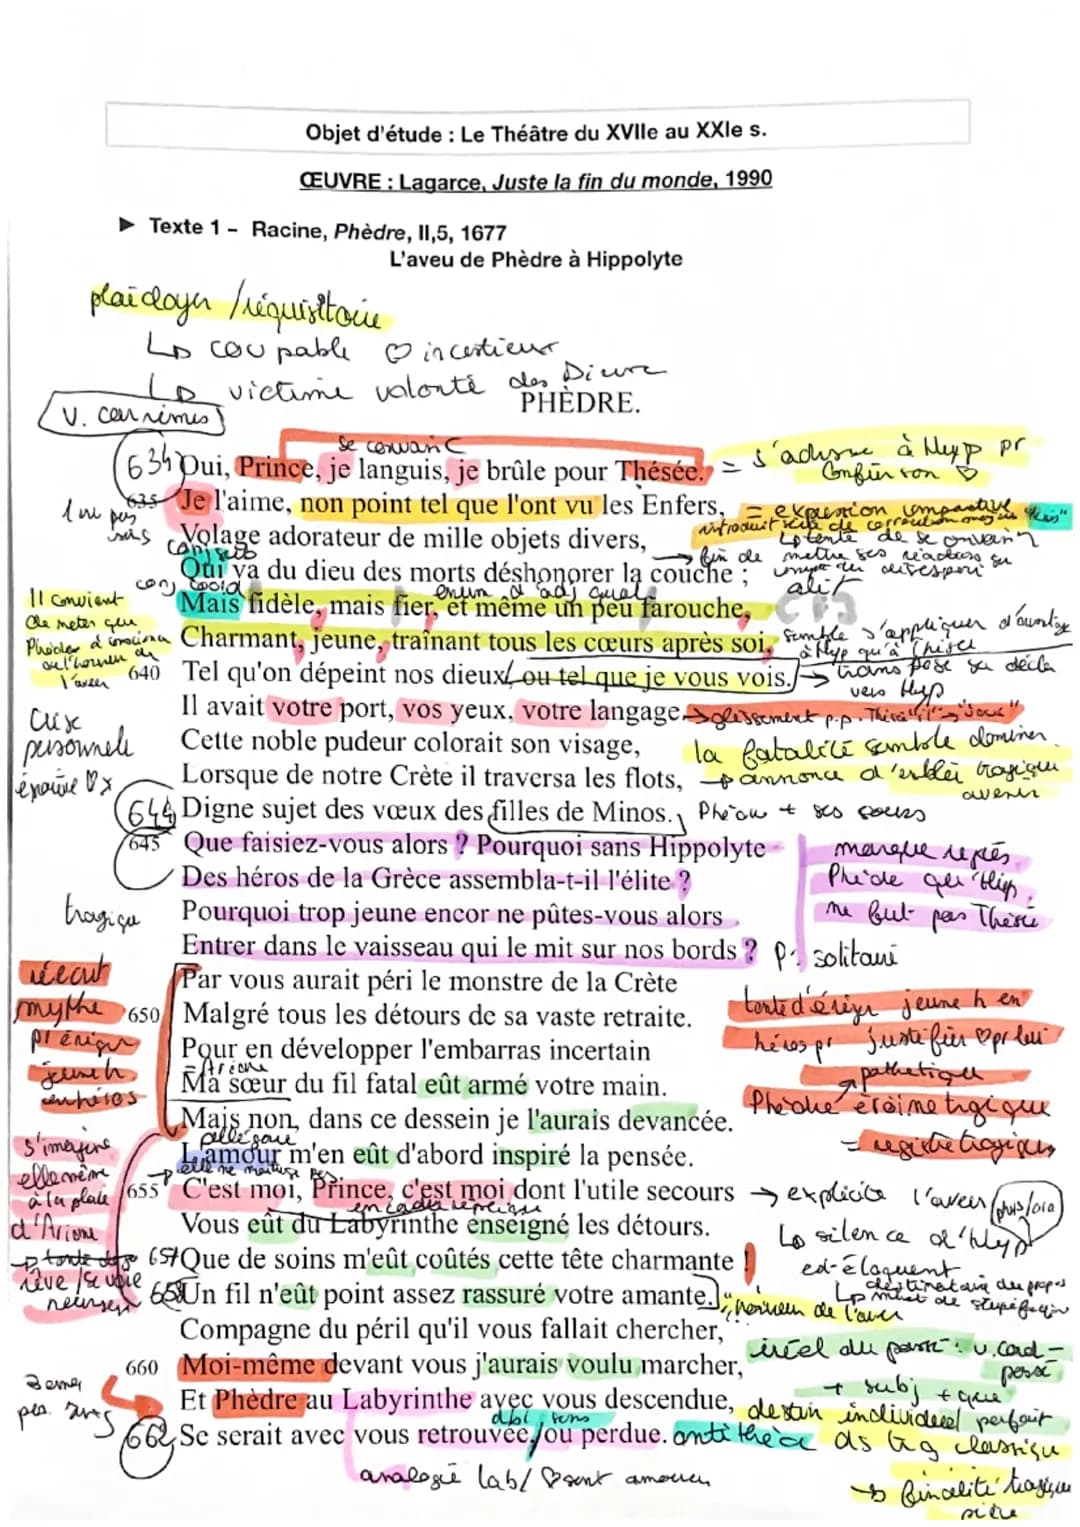 Objet d'étude : Le Théâtre du XVIIe au XXIe s.
ŒUVRE : Lagarce, Juste la fin du monde, 1990
► Texte 1 - Racine, Phèdre, II,5, 1677
L'aveu de Phèdre à Hippolyte
plaidoyer / réquisitoire
↳ coupable ♡ incestieux
↳ victime volonté des Dieux
PHÈDRE.
V. car rimes
se convainc
634 Oui, Prince, je languis, je brûle pour Thésée. = s'adresse à Hyp pr
confier son ♡
635 Je l'aime, non point tel que l'ont vu les Enfers, = expression comparative
Volage adorateur de mille objets divers,
Qui va du dieu des morts déshonorer la couche ;
conj coord
enum d'adj qual
Mais fidèle, mais fier, et même un peu farouche,
Il convient
de noter que
Charmant, jeune, traînant tous les cœurs après soi, semble s'appliquer d'avantage
à Hyp qu'à Thésée
l'aveu
640 Tel qu'on dépeint nos dieux, ou tel que je vous vois. → transpose sa décla
vers Hyp
Il avait votre port, vos yeux, votre langage, → glissement p.p. Thésée "il" → "vous"
personnelle
Cette noble pudeur colorait son visage, la fatalité semble dominer
Lorsque de notre Crète il traversa les flots, → annonce d'emblée tragique
avenir
644 Digne sujet des vœux des filles de Minos. Phèdre + ses sœurs
645 Que faisiez-vous alors ? Pourquoi sans Hippolyte
marque
Des héros de la Grèce assembla-t-il l'élite ?
Phèdre que Hip
tragique
Pourquoi trop jeune encor ne pûtes-vous alors
ne fut pas Thésée
Entrer dans le vaisseau qui le mit sur nos bords ?
solitaire
réécrit
Par vous aurait péri le monstre de la Crète
mythe
650 Malgré tous les détours de sa vaste retraite.
tente d'ériger jeune h en
pr ériger
Pour en développer l'embarras incertain
héros pr justifier ♡ pr lui
jeune h
en héros
= Ariane
Ma sœur du fil fatal eût armé votre main.
pathétique
Mais non, dans ce dessein je l'aurais devancée.
Phèdre héroïne tragique
s'imagine
allégorie
L'amour m'en eût d'abord inspiré la pensée.
= registre tragique
elle même
à la place
elle ne maîtrise pas
655 C'est moi, Prince, c'est moi dont l'utile secours → explicite l'aveu
d'Ariane
Vous eût du Labyrinthe enseigné les détours.
↳ silence d'Hyp
657 Que de soins m'eût coûtés cette tête charmante !
est éloquent
rêve / se voie
658 Un fil n'eût point assez rassuré votre amante.
horreur de l'aveu
Compagne du péril qu'il vous fallait chercher,
irréel du passé
660 Moi-même devant vous j'aurais voulu marcher,
+ subj + que
Et Phèdre au Labyrinthe avec vous descendue,
destin individuel parfait
dbl sens
662 Se serait avec vous retrouvée, ou perdue. antithèse ds trag classique
analogie lab/ ♡ sent amoureux
→ finalité tragique
pièce